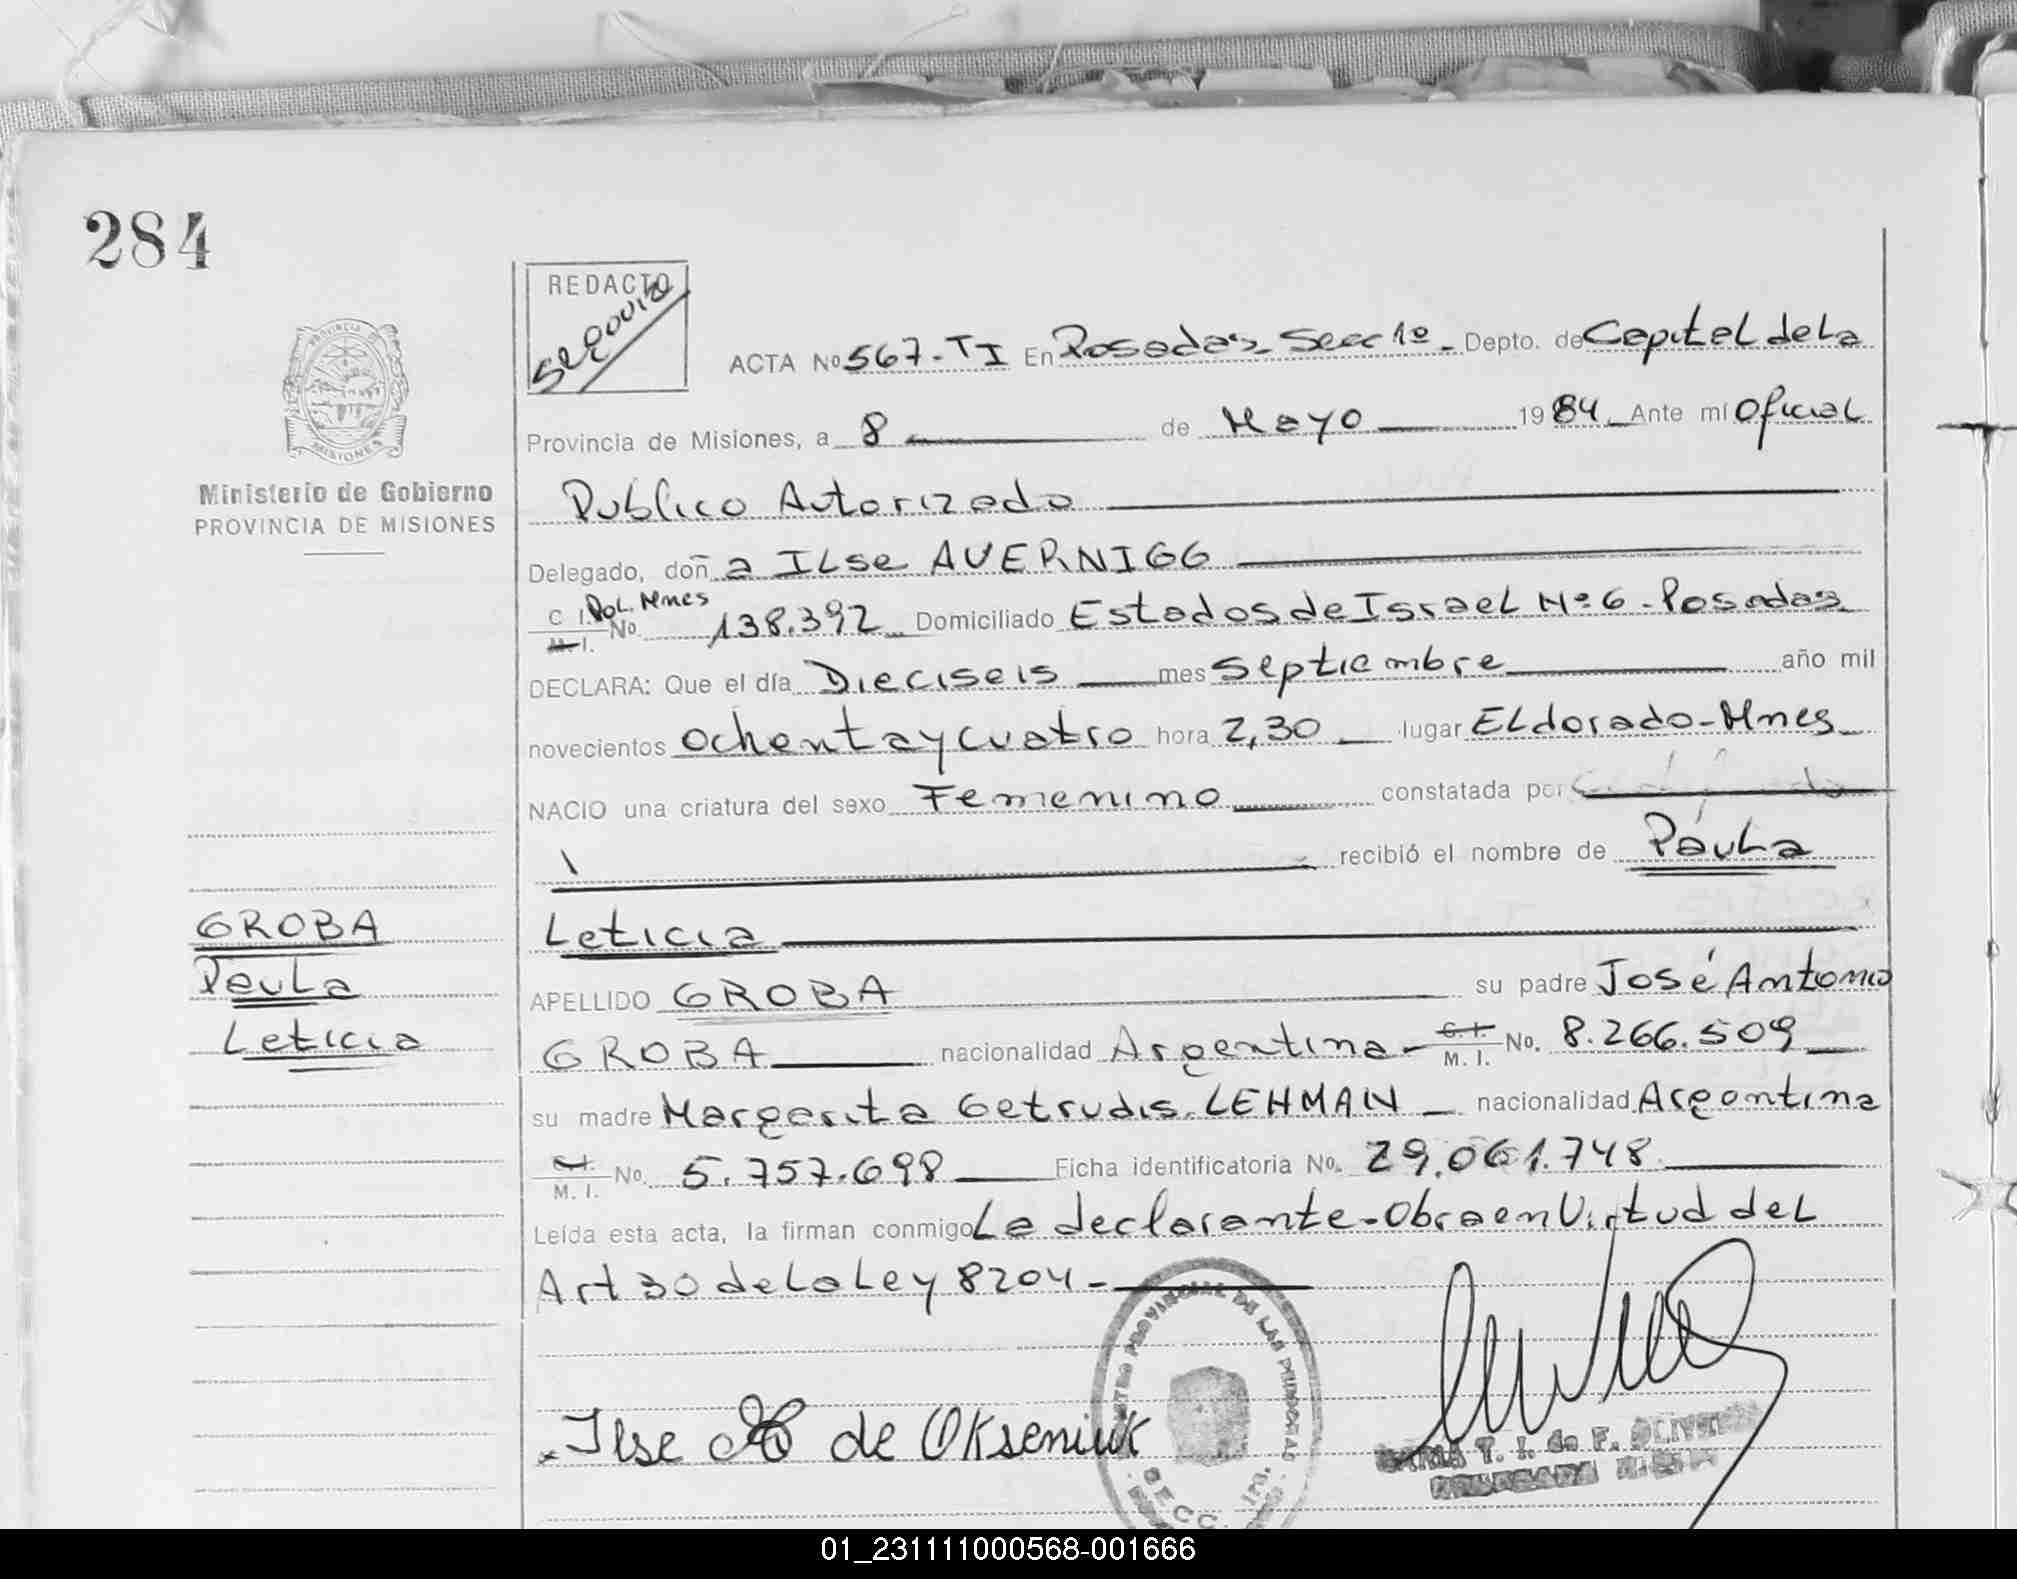 284
REDACTO
Segovia
PROVINCIA DE
MISIONES
Ministerio de Gobierno
PROVINCIA DE MISIONES
ACTA No 567-TI En Posadas Secc 1º - Depto. de Capital de La
Provincia de Misiones, a 8 de Mayo 1984 Ante mí Oficial
Publico Autorizado
Delegado, doña ILse AUERNIGG
C I. Pol. Mnes
M. I. No. 138.392 Domiciliado Estados de Israel Nº 6 - Posadas
DECLARA: Que el día Dieciseis mes Septiembre año mil
novecientos Ochenta y Cuatro hora 2,30 lugar ELdorado-Mnes
NACIO una criatura del sexo Femenino constatada por
recibió el nombre de PauLa
Leticia
GROBA
PauLa
Leticia
APELLIDO GROBA su padre José Antonio
GROBA nacionalidad Argentina - C. I. M. I. No. 8.266.509
su madre Margarita Getrudis LEHMAN nacionalidad Argentina
C. I. M. I. No. 5.757.698 Ficha identificatoria No. 29.061.748
Leída esta acta, la firman conmigo La declarante - Obra en Virtud deL
Art 30 de La Ley 8204 -
Ilse de Okseniuk
PROVINCIAL DE LAS PERSONAS
SECC. 1ra.
MARIA T. I. de F. OLIVEIRA
DELEGADA
01_231111000568-001666